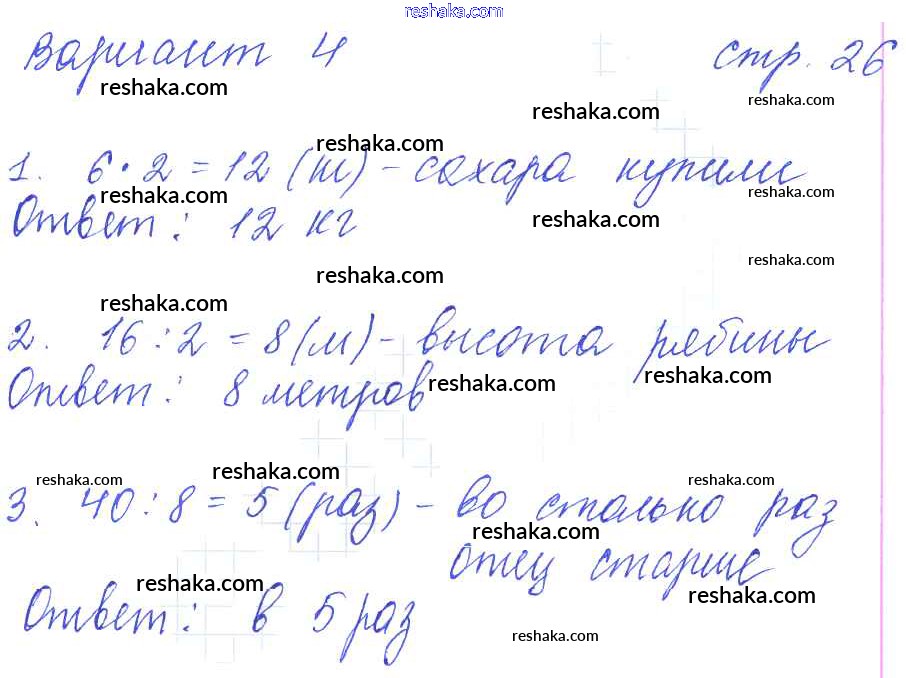 reshaka.com
Вариант 4 стр. 26
reshaka.com reshaka.com
reshaka.com
reshaka.com
1. 6 · 2 = 12 (кг) - сахара купили
reshaka.com reshaka.com
reshaka.com
Ответ: 12 кг
reshaka.com
reshaka.com
reshaka.com
2. 16 : 2 = 8 (м) - высота рябины
reshaka.com reshaka.com
Ответ: 8 метров
reshaka.com reshaka.com reshaka.com
3. 40 : 8 = 5 (раз) - во столько раз
reshaka.com
отец старше
reshaka.com reshaka.com
Ответ: в 5 раз
reshaka.com